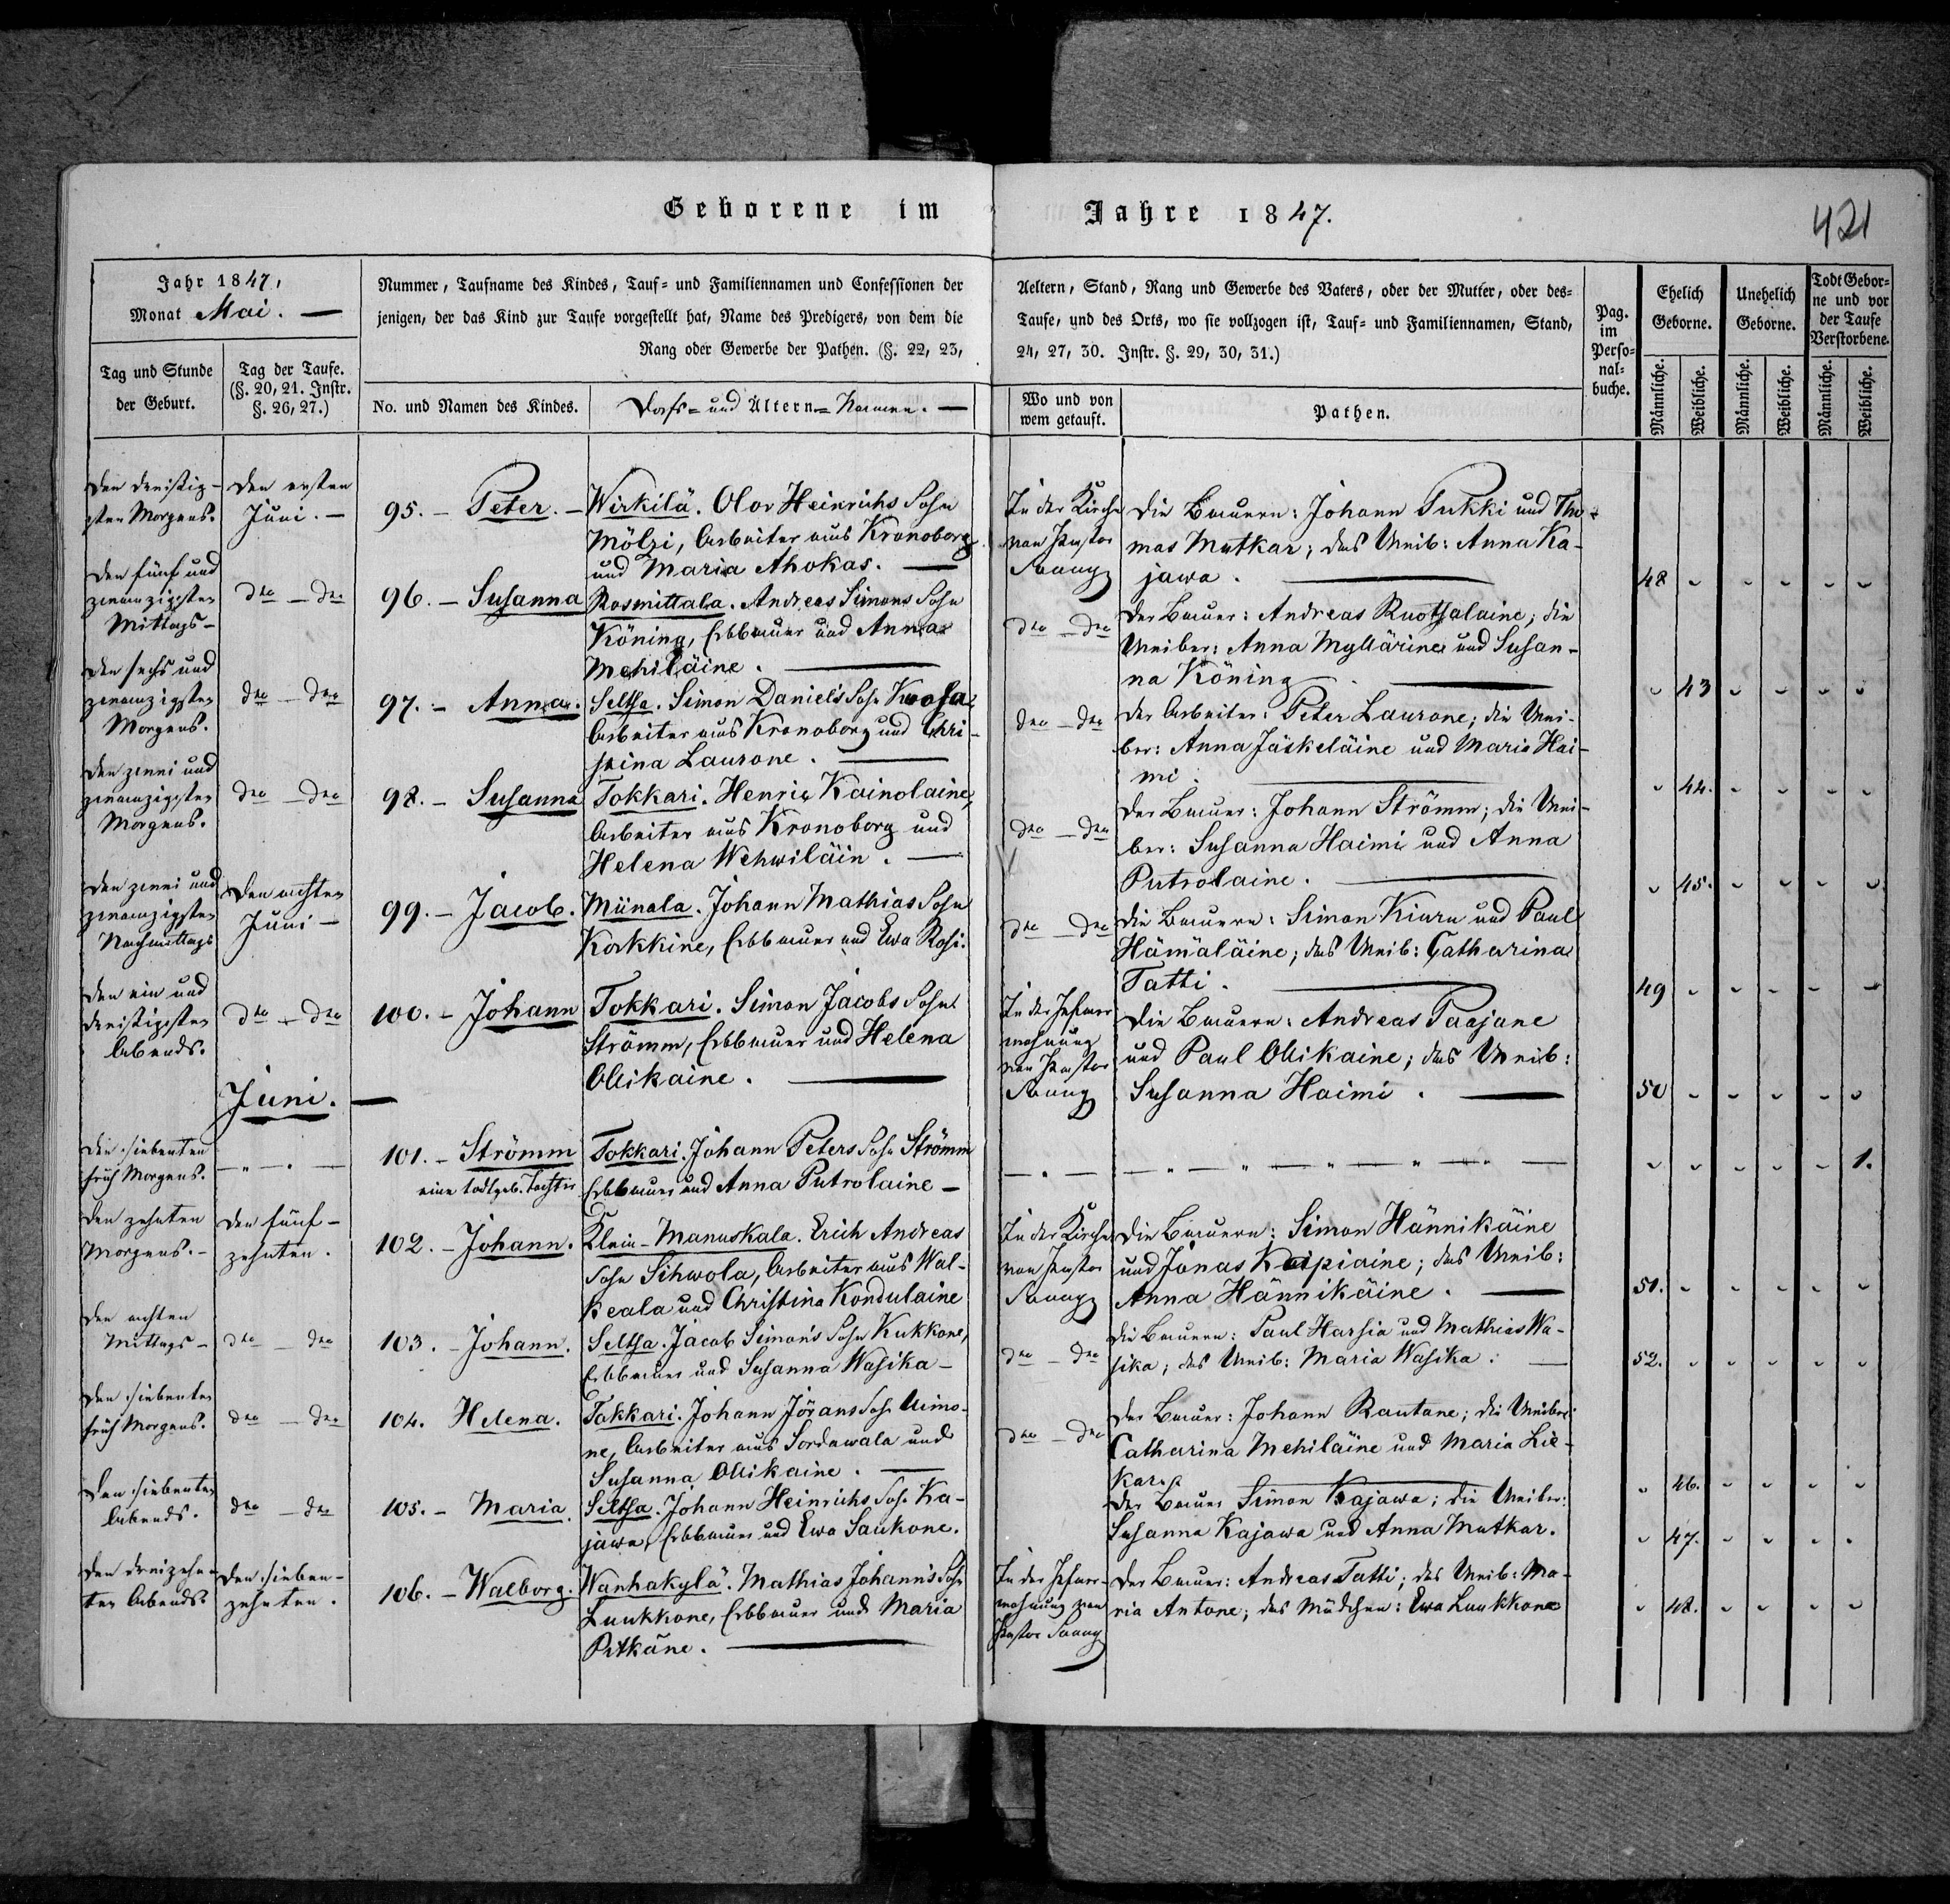 Geborene im Jahre 1847.
421
Jahr 1847,
Monat Mai. —
Tag und Stunde
der Geburt.
Tag der Taufe.
(§. 20, 21. Instr.
§. 26, 27.)
Nummer, Taufname des Kindes, Tauf= und Familiennamen und Confessionen der
jenigen, der das Kind zur Taufe vorgestellt hat, Name des Predigers, von dem die
Rang oder Gewerbe der Pathen. (§. 22, 23,
No. und Namen des Kindes.
Dorfs= und Ältern=Namen. —
Aeltern, Stand, Rang und Gewerbe des Vaters, oder der Mutter, oder des=
Taufe, und des Orts, wo sie vollzogen ist, Tauf= und Familiennamen, Stand,
24, 27, 30. Instr. §. 29, 30, 31.)
Wo und von
wem getauft.
Pathen.
Pag.
im
Perso=
nal=
buche.
Ehelich
Geborne.
Unehelich
Geborne.
Todt Gebor=
ne und vor
der Taufe
Verstorbene.
Männliche.
Weibliche.
Männliche.
Weibliche.
Männliche.
Weibliche.
Den dreißig-
sten Morgens.
Den ersten
Juni. —
95. — Peter. —
Wirkilä. Olov Heinrichs Sohn
Mölzi, Arbeiter aus Kronoborg
und Maria Ahokas. —
In der Kirche
von Pastor
Die Bauern: Johann Pukki und Tho-
mas Mutkar; das Weib: Anna Ka-
jawa. —
48
Den fünf und
zwanzigsten
Mittags —
dto — dto
96. — Susanna
Rosmittala. Andreas Simons Sohn
Köning, Erbbauer und Anna
Mehiläine. —
dto — dto
Der Bauer: Andreas Ruotsalaine; die
Weiber: Anna Myllärine und Susan-
na Köning —
43
Den sechs und
zwanzigsten
Morgens.
dto — dto
97. — Anna.
Seltsa. Simon Daniels Sohn
Arbeiter aus Kronoborg und Chri-
stina Laurone. —
dto — dto
Der Arbeiter: Peter Laurone; die Wei-
ber: Anna Jäskeläine und Maria Hai-
mi. —
44.
Den zwei und
zwanzigsten
Morgens.
dto — dto
98. — Susanna
Tokkari. Henric Kainolaine,
Arbeiter aus Kronoborg und
Helena Wehwiläin. —
dto — dto
Der Bauer: Johann Strömm; die Wei-
ber: Susanna Haimi und Anna
Putrolaine. —
45.
Den zwei und
zwanzigsten
Nachmittags
Den achten
Juni —
99. — Jacob.
Miinala. Johann Mathias Sohn
Korkkine, Erbbauer und Ewa Rosi.
dto — dto
Die Bauern: Simon Kiuru und Paul
Hämäläine; das Weib: Catharina
Tatti. —
49
Den ein und
dreißigsten
Abends.
dto — dto
100. — Johann
Tokkari. Simon Jacobs Sohn
Strömm, Erbbauer und Helena
Ollikaine. —
In der Pfarr
wohnung
von Pastor
Die Bauern: Andreas Paajane
und Paul Ollikaine; das Weib:
Susanna Haimi. —
50
Juni. —
Den siebenten
früh Morgens.
101. — Strömm
eine todtgeb. Tochter
Tokkari. Johann Peters Sohn Strömm
Erbbauer und Anna Putrolaine —
1.
Den zehnten
Morgens. —
Den fünf-
zehnten.
102. — Johann.
Klein-Manuskala. Erich Andreas
Sohn Sihwola, Arbeiter aus Wal-
keala und Christina Kondulaine
In der Kirche
von Pastor
Die Bauern: Simon Hännikäine
und Jonas Kaipiaine; das Weib:
Anna Hännikäine. —
51.
Den achten
Mittags —
dto — dto
103. — Johann.
Seltsa. Jacob Simon's Sohn Kukkone,
Erbbauer und Susanna Wasika —
dto — dto
Die Bauern: Paul Harsia und Mathias Wa-
sika; das Weib: Maria Wasika. —
52.
Den siebenten
früh Morgens.
dto — dto
104. Helena.
Tokkari. Johann Jörans Sohn Aimo-
ne, Arbeiter aus Sordawala und
Susanna Ollikaine. —
dto — dto
Der Bauer: Johann Rautane; die Weiber:
Catharina Mehiläine und Maria Lie-
46.
Den siebenten
Abends.
dto — dto
105. — Maria.
Seltsa. Johann Heinrichs Sohn Ka-
jawa, Erbbauer und Ewa Saukone.
Der Bauer Simon Kajawa; die Weiber:
Susanna Kajawa und Anna Mutkar.
47.
Den dreizehn-
ten Abends.
Den sieben-
zehnten.
106. — Walborg.
Wanhakylä. Mathias Johann's Sohn
Luukkone, Erbbauer und Maria
Pitkäne. —
In der Pfarr-
wohnung von
Pastor
Der Bauer: Andreas Tatti; das Weib: Ma-
ria Antone; das Mädchen: Ewa Luukkone
48.